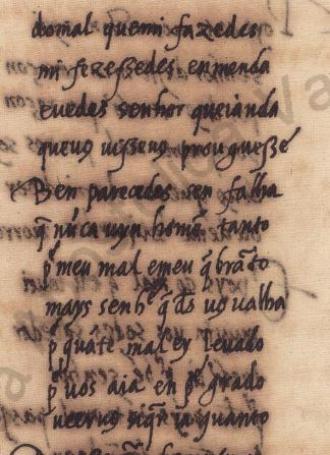 domal quemi fazedes
mi fezeßedes enmenda
euedes senhor quejanda
queuꝯ uißeuꝯ prouguesse
Ben parecedes sen falha
q̃ nũca uyu home tanto
p̃ meu mal emeu q̃brãto
mays senhʳ q̃ đs uꝯ ualha
p̃ quãto mal ey leuado
p̃ uos aia en p̃ grado
ueeruꝯ siq̃r ia quanto